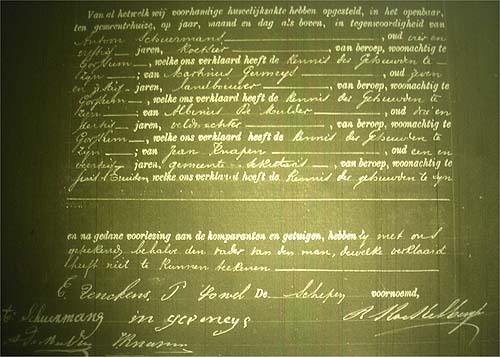 Van al hetwelk wij voorhandige huwelijksakte hebben opgesteld, in het openbaar,
ten gemeentehuize, op jaar, maand en dag als boven, in tegenwoordigheid van
Antoon Schuermans, oud vier en
vijftig jaren, van beroep, woonachtig te
, welke ons verklaard heeft de Kennis des Gehuwden te
zijn; van Martinus, oud zeven
en jaren, landbouwer, van beroep, woonachtig te
, welke ons verklaard heeft de Kennis des Gehuwden te
zijn; van Albinus De Meulder, oud drie en
dertig jaren, veldwachter, van beroep, woonachtig te
, welke ons verklaard heeft de Kennis des Gehuwden te
zijn; van Jean Knapen, oud een en
veertig jaren, gemeente sekretaris, van beroep, woonachtig te
welke ons verklaard heeft de Kennis des gehuwden te zijn
en na gedane voorlezing aan de komparanten en getuigen, hebben zij met ons
geteekend, behalve den vader van den man, dewelke verklaard
heeft niet te kunnen teekenen
De Schepen voornoemd,
Schuermans